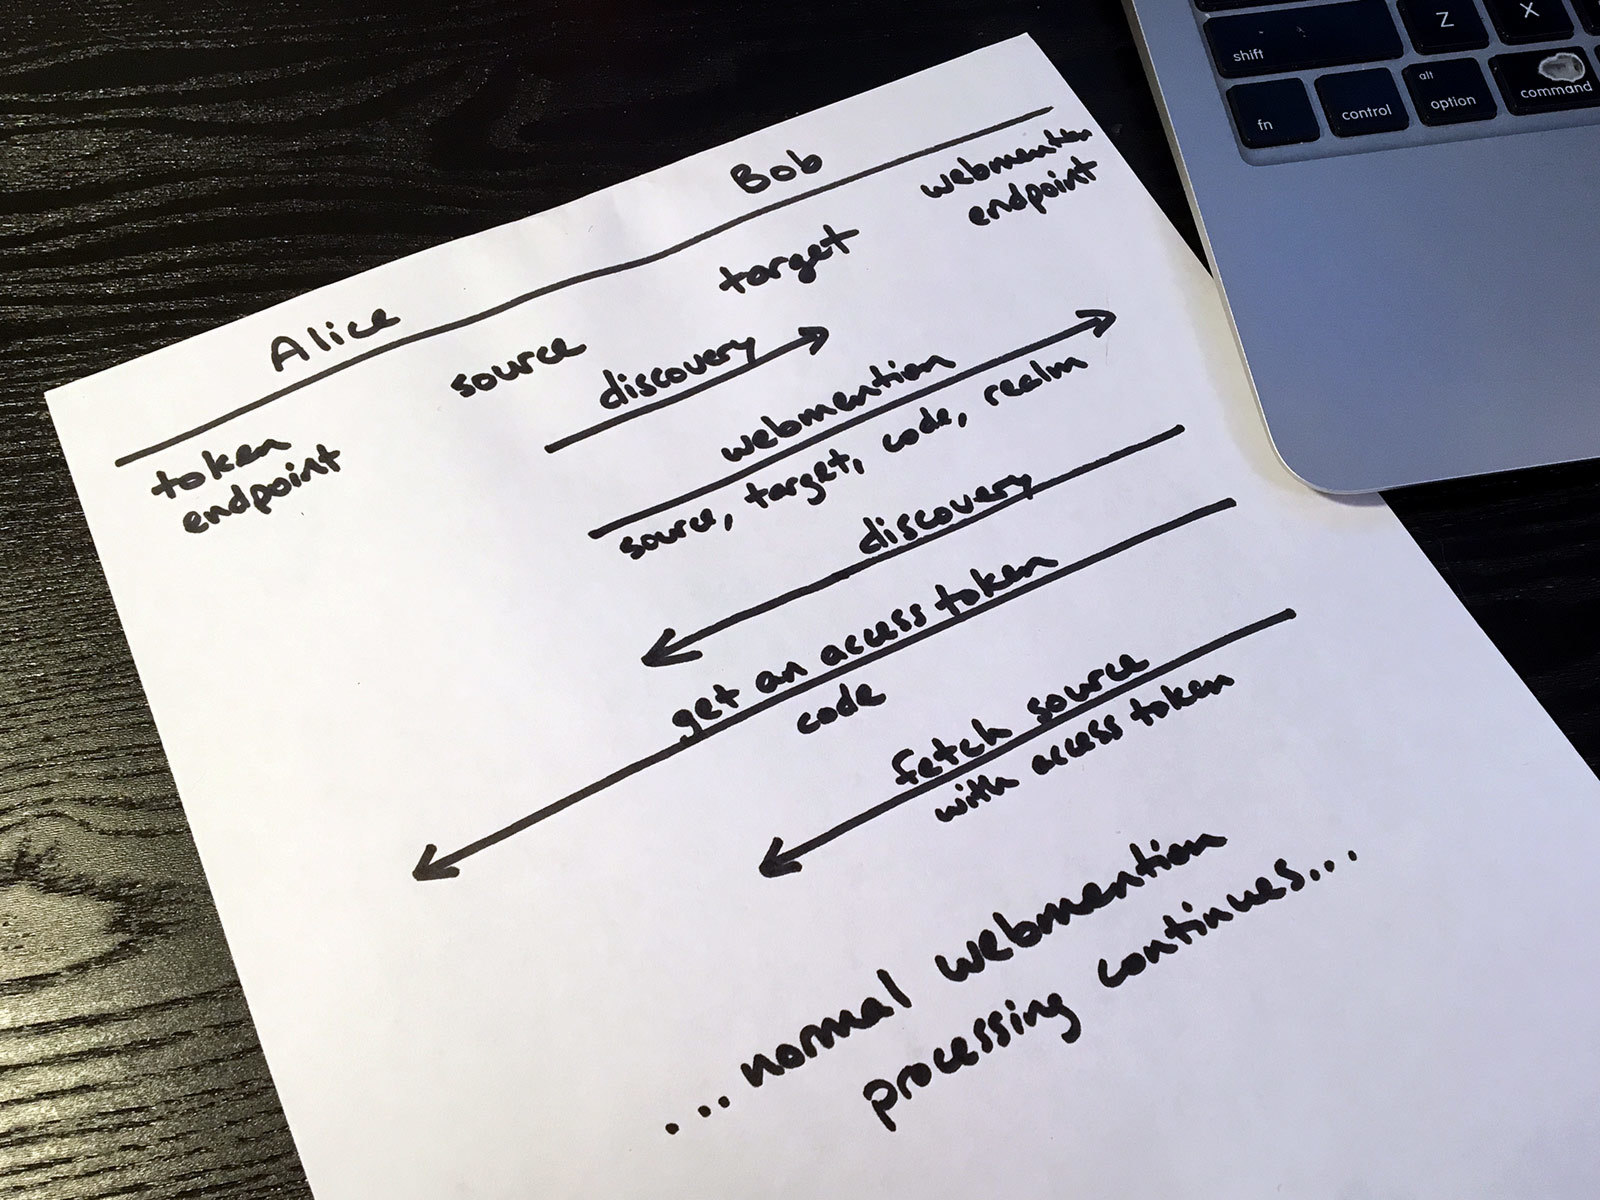 Alice
Bob
token
endpoint
source
target
webmention
endpoint
discovery
webmention
source, target, code, realm
discovery
get an access token
code
fetch source
with access token
...normal webmention
processing continues...
Z
X
shift
fn
control
alt
option
command